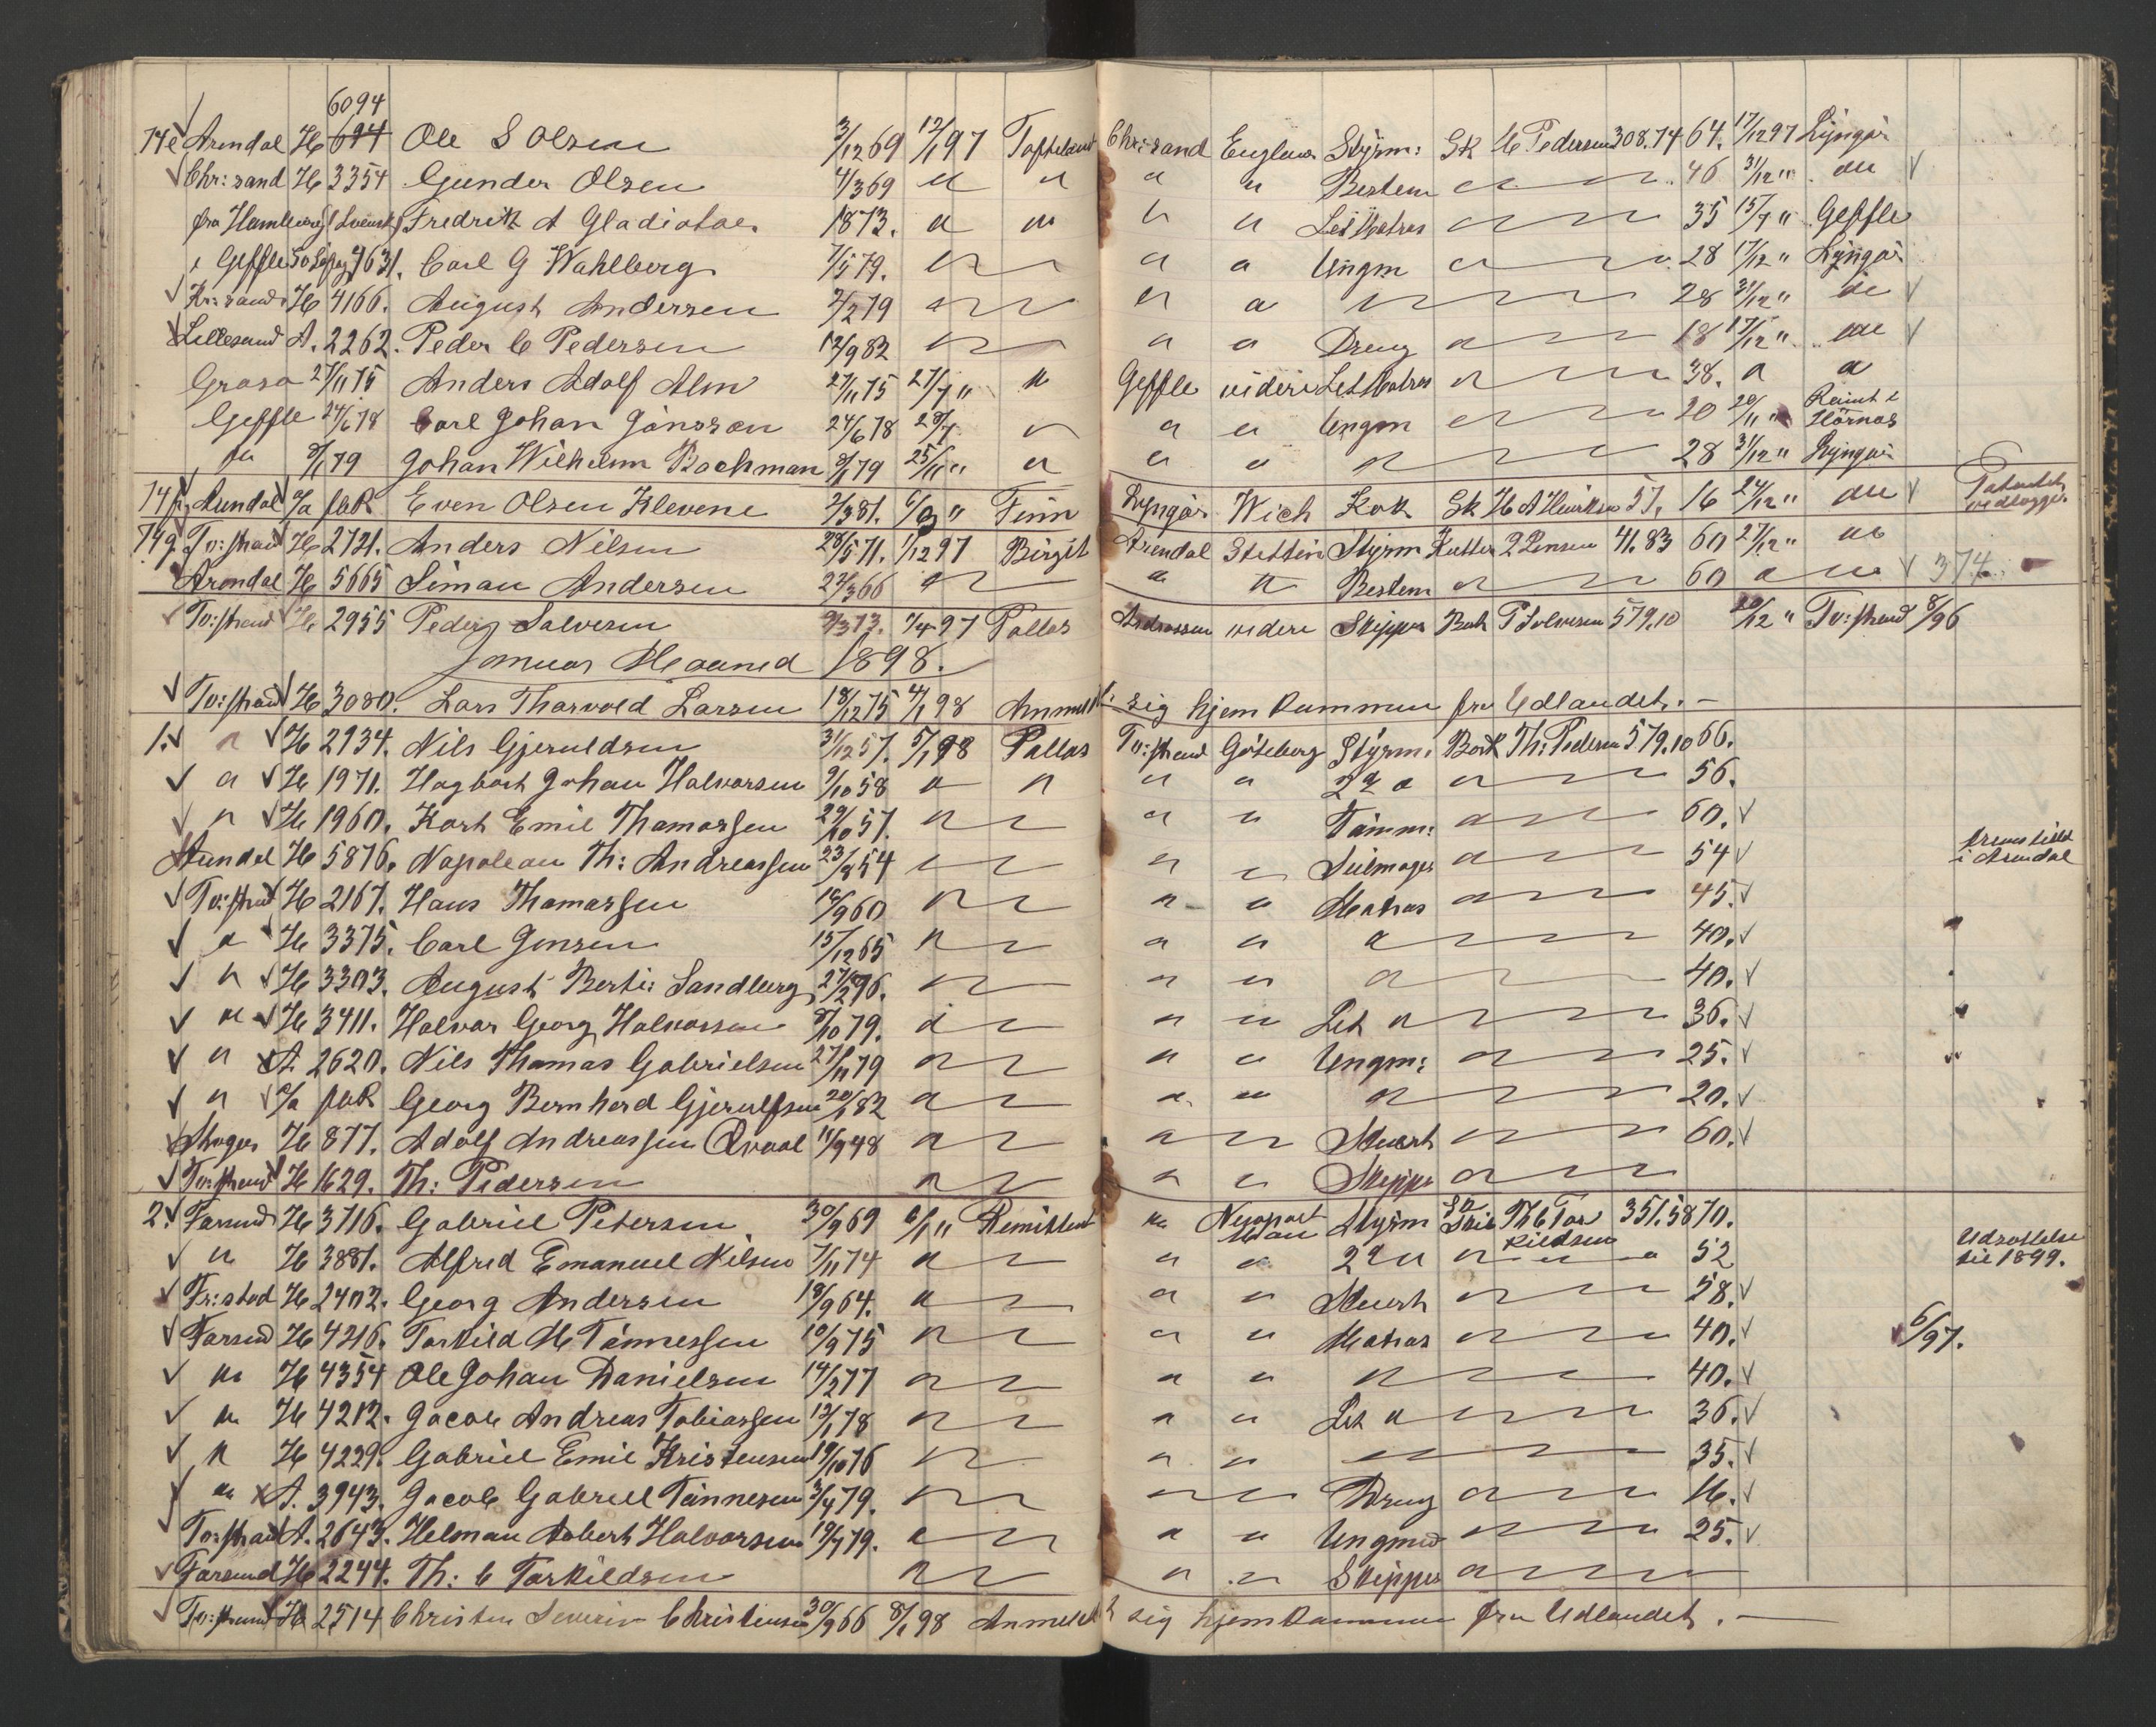 6094
14e Arendal H 694 Ole S Olsen 3/12 69 12/1 97 Chr:sand England Styrm: Sk C Pedersen 308.74 64. 17/12 97 Lyngør
Chr:sand H 3354 Gunder Olsen 4/3 69 " " " " Bestm " 46 31/12 " do
fra Hamburg Svensk Fredrik A Gladiator 1873. " " " " Let Matros " 35 15/7 " Geffle
i Geffle Carl G Wahlberg 7/5 79. " " " Ungm " 28 17/12 " Lyngør
Kr:sand H 4166. August Andersen 2/2 79 " " " " 28 31/12 " do
Lillesand A. 2262. Peder C Pedersen 12/9 82 " " " Dreng " 18 17/12 " do
Graso 27/11 75 Anders Adolf Alm 27/11 75 27/7 " " Geffle videre Let Matros " 38. " "
Geffle 24/6 78 Carl Johan Jönsson 24/6 78 28/7 " " " Ungm " 20 20/11 " Rømt i Hörnas
do 8/1 79 Johan Wilhelm Bachman 8/1 79 25/11 " " " " " 28 31/12 " Lyngør
14f Arendal Even Olsen Klevene 2/3 81. " Finn Lyngør Wich Kok Sk H A Henriksen 57. 16 24/12 " do
149 Tv:strand H 2721. Anders Nilsen 28/5 71. 1/12 97 Birgit Arendal Stettin Styrm Kutter 41.83 60 27/12 " do
Arendal H 5665 Simon Andersen 23/3 66 " " " Bestm " 60 " " 374
Tv:strand H 2955 Peder Salvesen 9/3 73. 7/4 97 Pallas Ardrossan videre Skipper Bark P Solvesen 579.10 20/12 " Tv:strand 8/96
Januar Maaned 1898.
Tv:strand H 3080. Lars Thorvald Larsen 18/12 75 4/1 98 Anmeldt sig hjemkommen fra Udlandet. —
1. " H 2934. Nils Gjeruldsen 31/12 57. 5/1 98 Pallas Tv:strand Göteborg Styrm: Bark Th: Pedersen 579.10 66.
" H 1971. Hagbart Johan Halvorsen 9/10 58 " " " " 2den " 56.
" H 1960. Kart Emil Thomassen 29/10 57. " " " Tømm: " 60.
Arendal H 5876. Napoleon Th: Andreassen 23/8 54 " " " Seilmager " 54 fremstillt i Arendal
Tv:strand H 2167. Hans Thomassen 16/9 60 " " " Matros " 45.
" H 3375. Carl Jensen 15/12 65 " " " " 40.
" H 3303. August Berti: Sandberg 27/2 96. " " " " 40.
" H 3411. Halvor Georg Halvorsen 8/10 79. " " " Let " 36.
" A 2620. Nils Thomas Gabrielsen 27/11 79 " " " Ungm: " 25.
" Georg Bernhard Gjerulfsen 20/1 82 " " " " 20.
H 877. Adolf Andreassen 11/9 48 " " " Stuert " 60.
Tv:strand H 1629. Th: Pedersen " " " Skipper "
2. Farsund H 3716. Gabriel Petersen 30/9 69 6/1 " Remittent " Newport Styrm Sk Th C Torkildsen 351.58 70.
" H 3881. Alfred Emanuel Nilsen 7/11 74 " " " 2den " 52 Udsættelse til 1899.
Fr:stad H 2402. Georg Andersen 18/9 64. " " " Stuert " 58.
Farsund H 4216. Torkild M Tønnessen 10/9 75 " " " Matros " 40. 6/97.
" H 4354 Ole Johan Danielsen 14/2 77 " " " " 40.
" H 4212. Jacob Andreas Tobiassen 12/1 78 " " " Let " 36.
" H 4229. Gabriel Emil Kristensen 19/10 76 " " " " 35.
" A. 3943. Jacob Gabriel Tønnesen 3/4 79. " " " Dreng " 16.
Tv:strand A. 2643. Helman Robert Halvorsen 19/7 79. " " " Ungmd " 25.
Farsund H 2244. Th: C Torkildsen " " " Skipper "
Tv:strand H 2514 Christen Severin Christensen 30/9 66 8/1 98 Anmeldt sig hjemkommen fra Udlandet. —